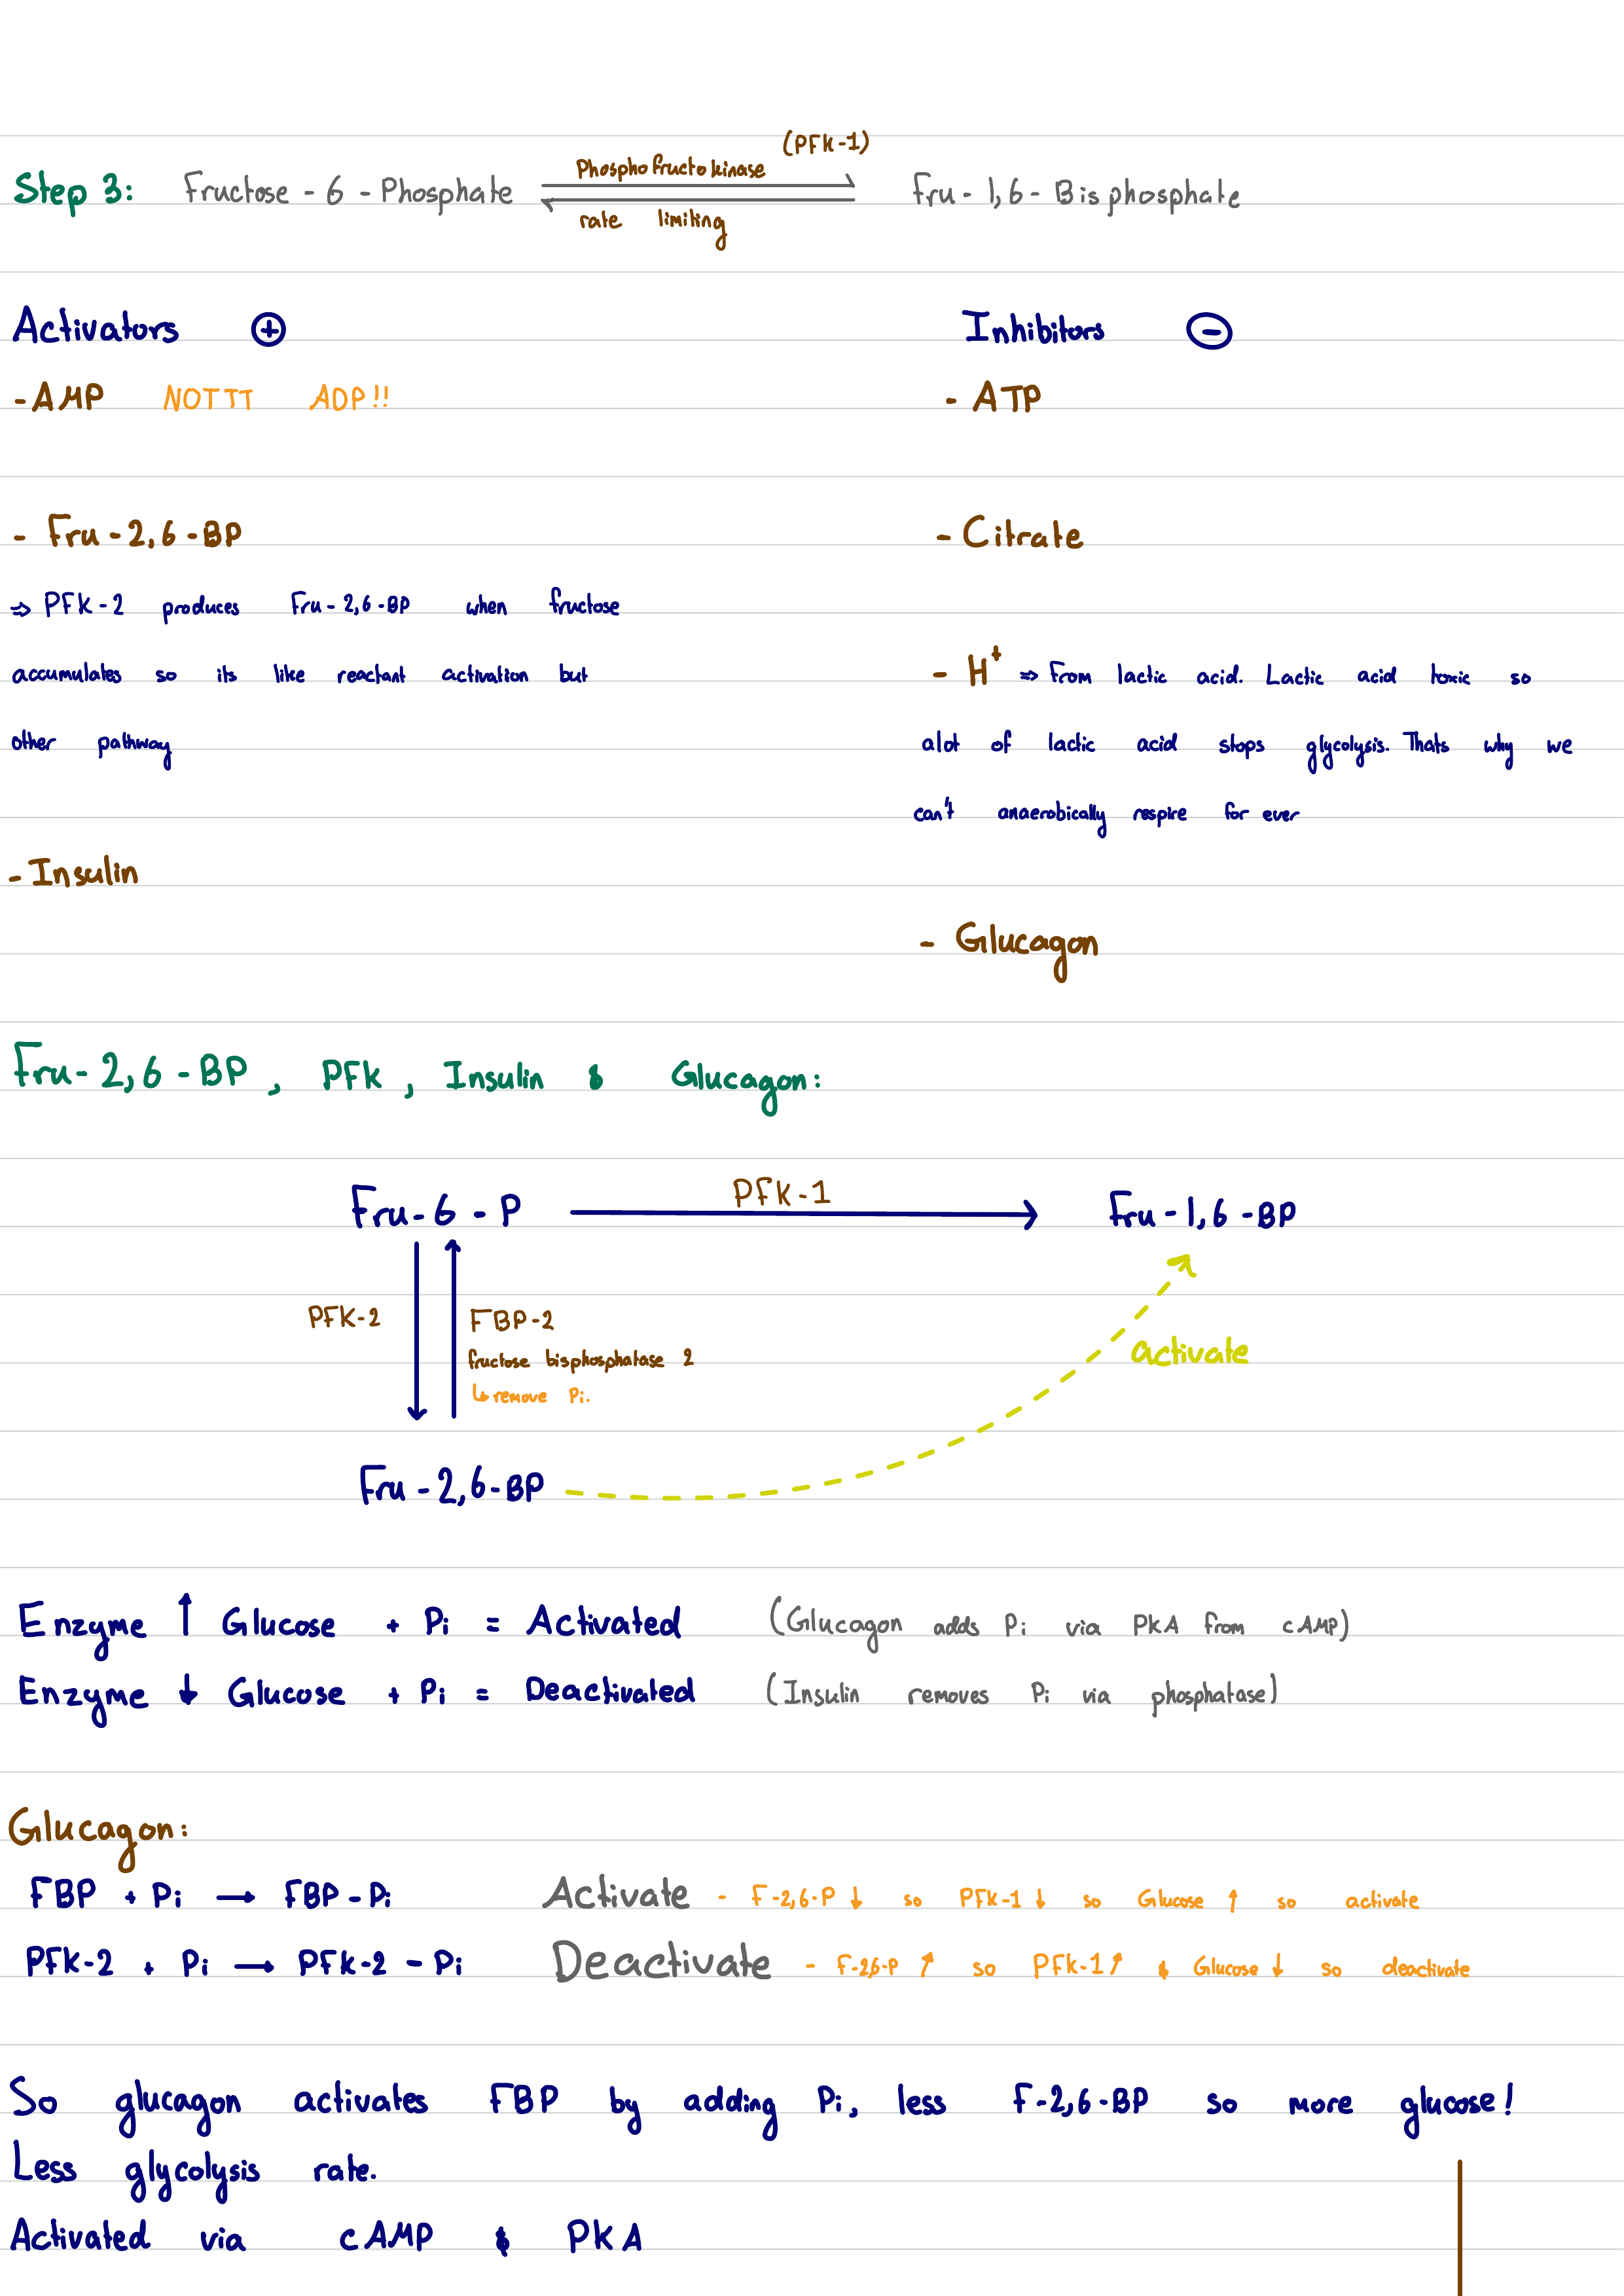 (PFK-1)
Step 3: Fructose - 6 - Phosphate Phosphofructokinase Fru - 1,6 - Bisphosphate
rate limiting
Activators ⊕
Inhibitors ⊖
- AMP NOTTT ADP!!
- ATP
- Fru - 2,6 - BP
- Citrate
⇒ PFK-2 produces Fru-2,6-BP when fructose
accumulates so its like reactant activation but
other pathway
- H⁺ ⇒ From lactic acid. Lactic acid toxic so
alot of lactic acid stops glycolysis. Thats why we
can't anaerobically respire for ever
- Insulin
- Glucagon
Fru-2,6-BP, PFK, Insulin & Glucagon:
Fru-6-P PFK-1 Fru-1,6-BP
PFK-2
FBP-2
fructose bisphosphatase 2
↳ remove Pi.
activate
Fru-2,6-BP
Enzyme ↑ Glucose + Pi = Activated (Glucagon adds Pi via PKA from cAMP)
Enzyme ↓ Glucose + Pi = Deactivated (Insulin removes Pi via phosphatase)
Glucagon:
FBP + Pi → FBP-Pi Activate - F-2,6-P ↓ so PFK-1 ↓ so Glucose ↑ so activate
PFK-2 + Pi → PFK-2-Pi Deactivate - F-2,6-P ↑ so PFK-1 ↑ & Glucose ↓ so deactivate
So glucagon activates FBP by adding Pi, less F-2,6-BP so more glucose!
Less glycolysis rate.
Activated via cAMP & PKA